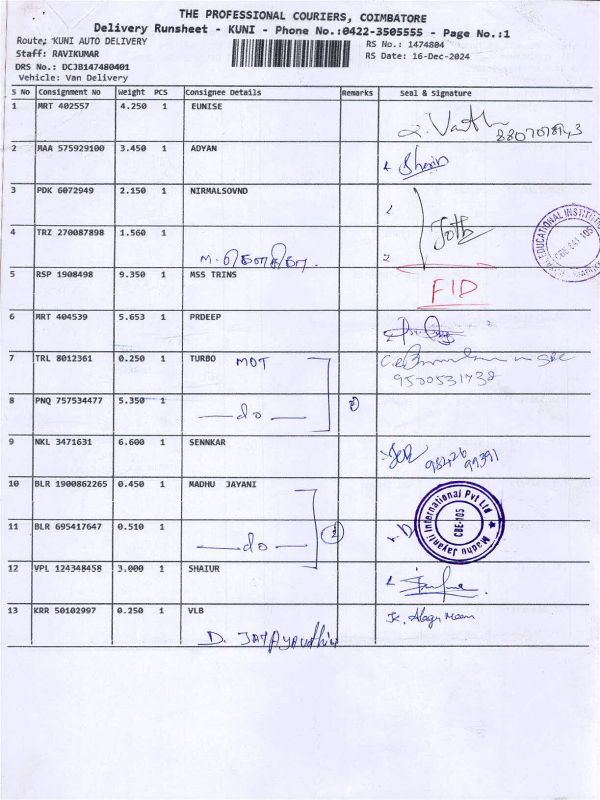 THE PROFESSIONAL COURIERS, COIMBATORE
Delivery Runsheet - KUNI - Phone No.:0422-3505555 - Page No.:1
Route: KUNI AUTO DELIVERY
RS No.: 1474804
Staff: RAVIKUMAR
RS Date: 16-Dec-2024
DRS No.: DCJB147480401
Vehicle: Van Delivery
S No Consignment No Weight PCS Consignee Details Remarks Seal & Signature
1 MRT 402557 4.250 1 EUNISE
2 MAA 575929100 3.450 1 ADYAN
3 PDK 6072949 2.150 1 NIRMALSOVND
4 TRZ 270087898 1.560 1
EDUCATIONAL INSTITUTI
5 RSP 1908498 9.350 1 MSS TRINS
FID
6 MRT 404539 5.653 1 PRDEEP
7 TRL 8012361 0.250 1 TURBO MOT
9500531738
8 PNQ 757534477 5.350 1 —do— 2
9 NKL 3471631 6.600 1 SENNKAR
98426 99391
10 BLR 1900862265 0.450 1 MADHU JAYANI
Madhu Jayanti International Pvt Ltd
CBE-105
11 BLR 695417647 0.510 1 —do— 2
12 VPL 124348458 3.000 1 SHAIUR
13 KRR 50102997 0.250 1 VLB